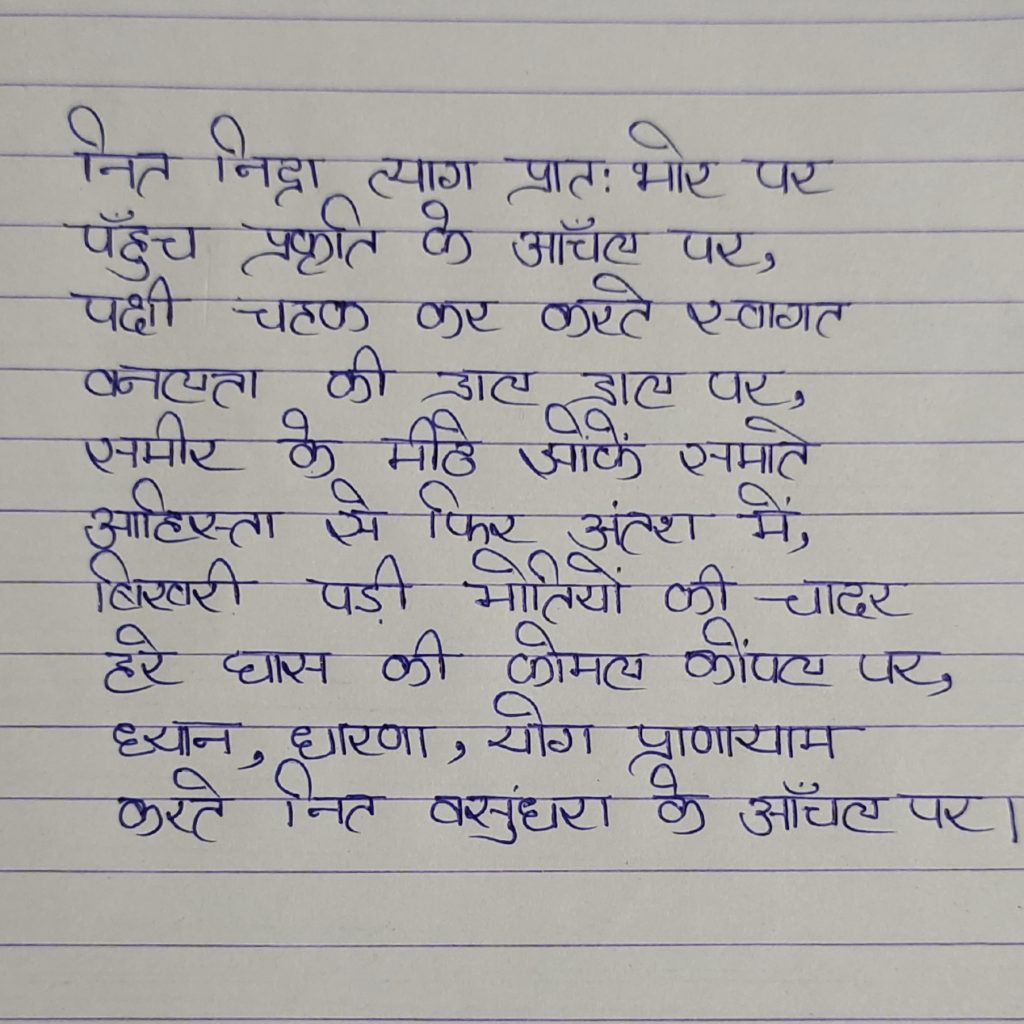 नित निद्रा त्याग प्रात: भोर पर
पँहुच प्रकृति के आँचल पर,
पक्षी चहक कर करते स्वागत
वनलता की डाल डाल पर,
समीर के मीठे झोंकें समाते
आहिस्ता से फिर अंतश में,
बिखरी पड़ी मोतियों की चादर
हरे घास की कोमल कोंपल पर,
ध्यान, धारणा, योग प्राणायाम
करते नित वसुंधरा के आँचल पर।